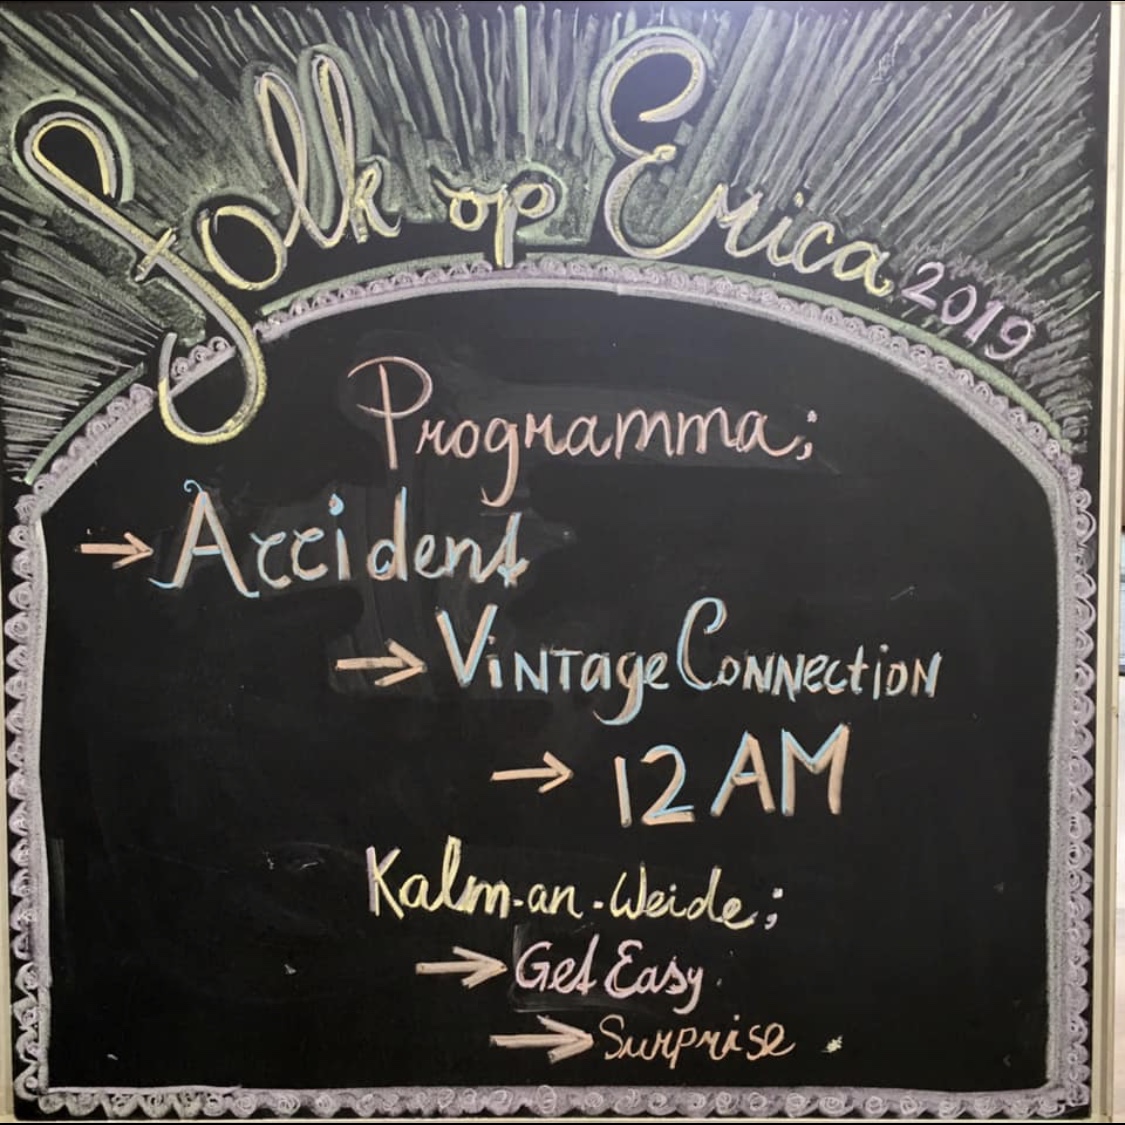 Folk op Erica 2019
Programma;
→ Accident
→ Vintage Connection
→ 12 AM
Kalm-an-Weide;
→ Get Easy
→ Surprise